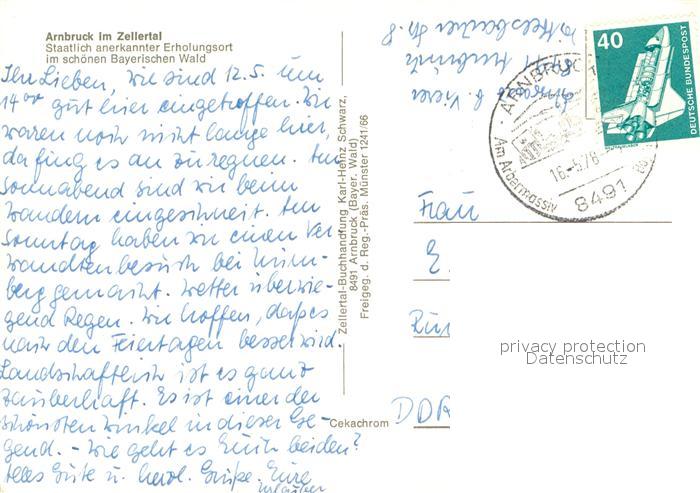 Arnbruck im Zellertal
Staatlich anerkannter Erholungsort
im schönen Bayerischen Wald
Ihr Lieben, wir sind 12.5. um
14°° gut hier eingetroffen. Wir
waren noch nicht lange hier,
da fing es an zu regnen. Am
Sonnabend sind wir beim
Wandern eingeschneit. Am
Sonntag haben wir einen Ver-
wandtenbesuch bei Nürn-
berg gemacht. Wetter überwie-
gend Regen. Wir hoffen, daß es
nach den Feiertagen besser wird.
Landschaftlich ist es ganz
zauberhaft. Es ist einer der
schönsten Winkel in dieser Ge-
gend. - Wie geht es Euch beiden?
Alles Gute u. herzl. Grüße. Eure
Urlauber
Zellertal-Buchhandlung Karl-Heinz Schwarz,
8491 Arnbruck (Bayer. Wald)
Freigeg. d. Reg.-Präs. Münster 1241/66
Cekachrom
8491 Arnbruck
40
DEUTSCHE BUNDESPOST
ARNBRUCK
16.-5.78
Am Arbermassiv
8491
Frau
E.
DDR
privacy protection
Datenschutz